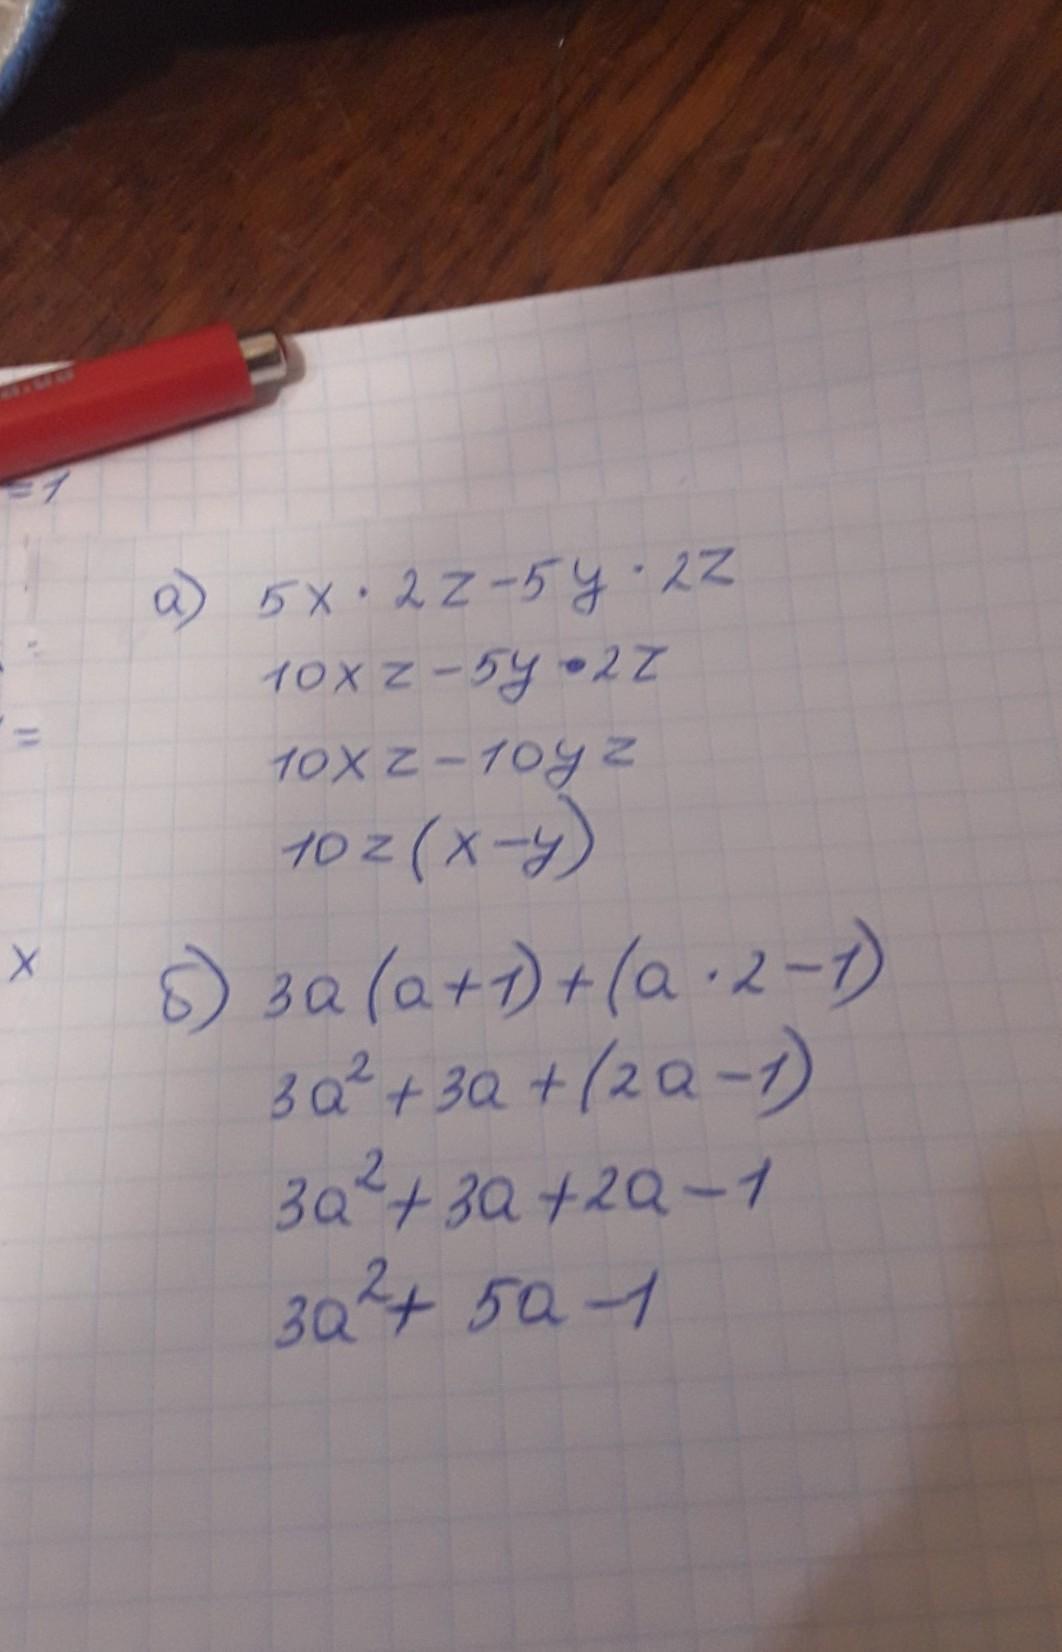 =1
=
x
а) 5x · 2z - 5y · 2z
10xz - 5y · 2z
10xz - 10yz
10z(x - y)
б) 3a(a+1) + (a · 2 - 1)
3a² + 3a + (2a - 1)
3a² + 3a + 2a - 1
3a² + 5a - 1